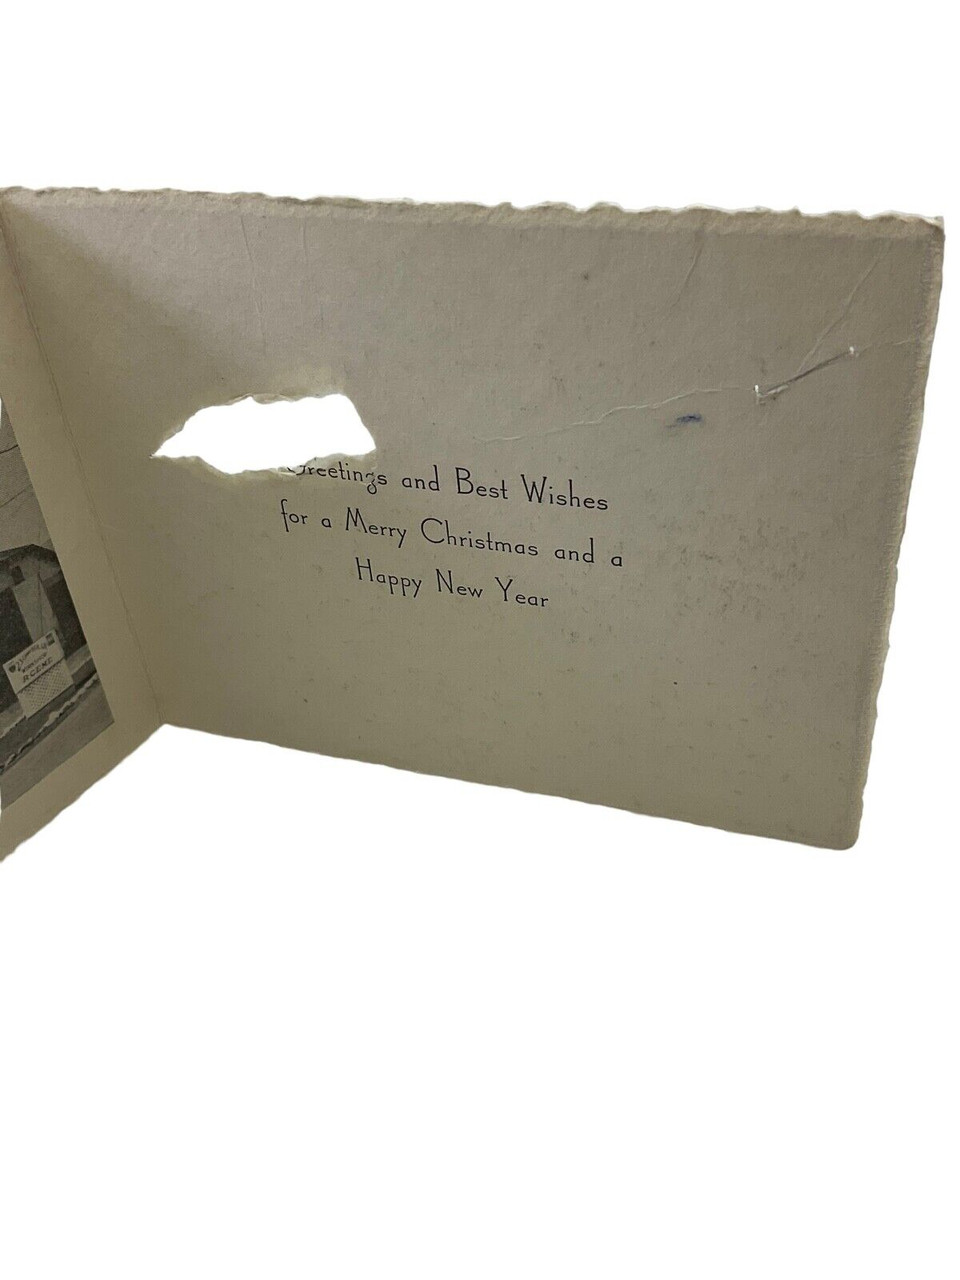 Greetings and Best Wishes
for a Merry Christmas and a
Happy New Year
WORKSHOP
RCEME